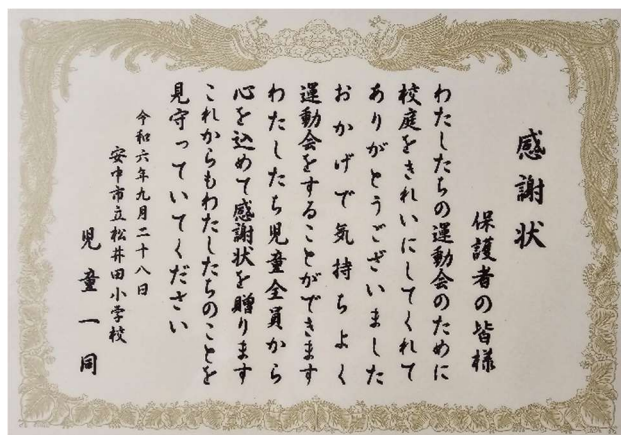 感謝状
保護者の皆様
わたしたちの運動会のために
校庭をきれいにしてくれて
ありがとうございました
おかげで気持ちよく
運動会をすることができます
わたしたち児童全員から
心を込めて感謝状を贈ります
これからもわたしたちのことを
見守っていてください
令和六年九月二十八日
安中市立松井田小学校
児童一同